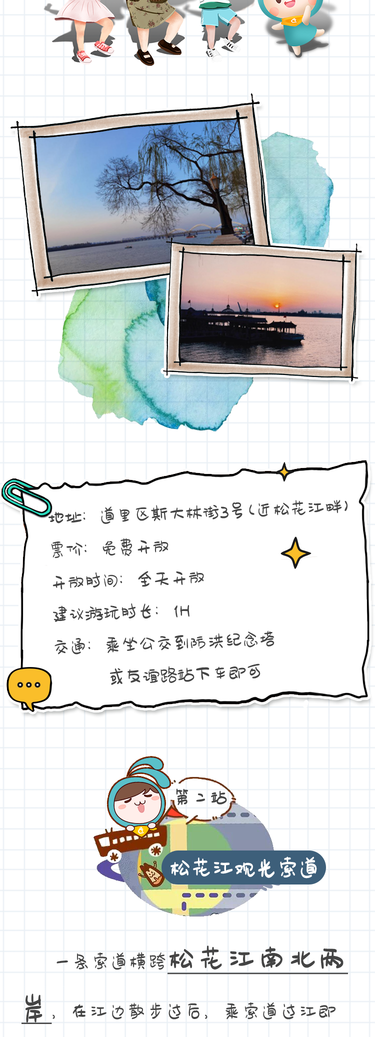 地址：道里区斯大林街3号(近松花江畔)
票价：免费开放
开放时间：全天开放
建议游玩时长：1H
交通：乘坐公交到防洪纪念塔
或友谊路站下车即可
第二站
松花江观光索道
一条索道横跨松花江南北两
岸，在江边散步过后，乘索道过江即